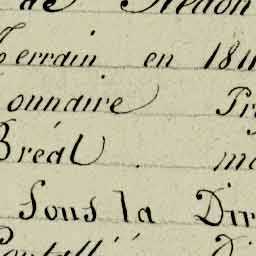 de Redon
Terrain en 184
onnaire Pr
Bréal . ma
Sous la Dir